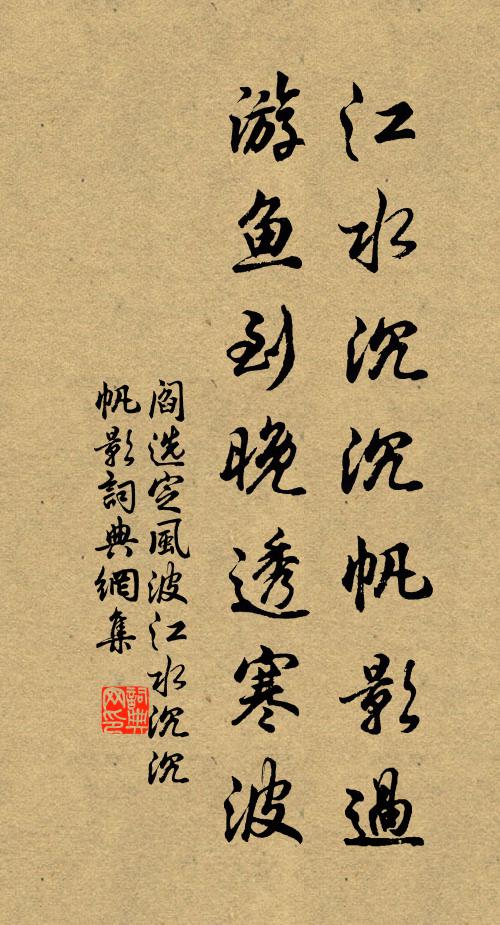 江水沉沉帆影過
游鱼到晚透寒波
阎选定風波江水沉沉
帆影詞典網集
詞典
网印